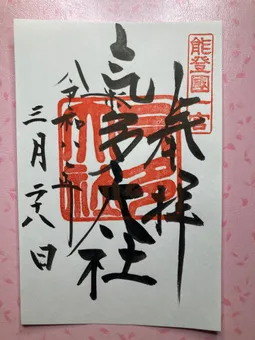 能登國一宮
奉拝
氣多大社
令和六年
三月二十八日